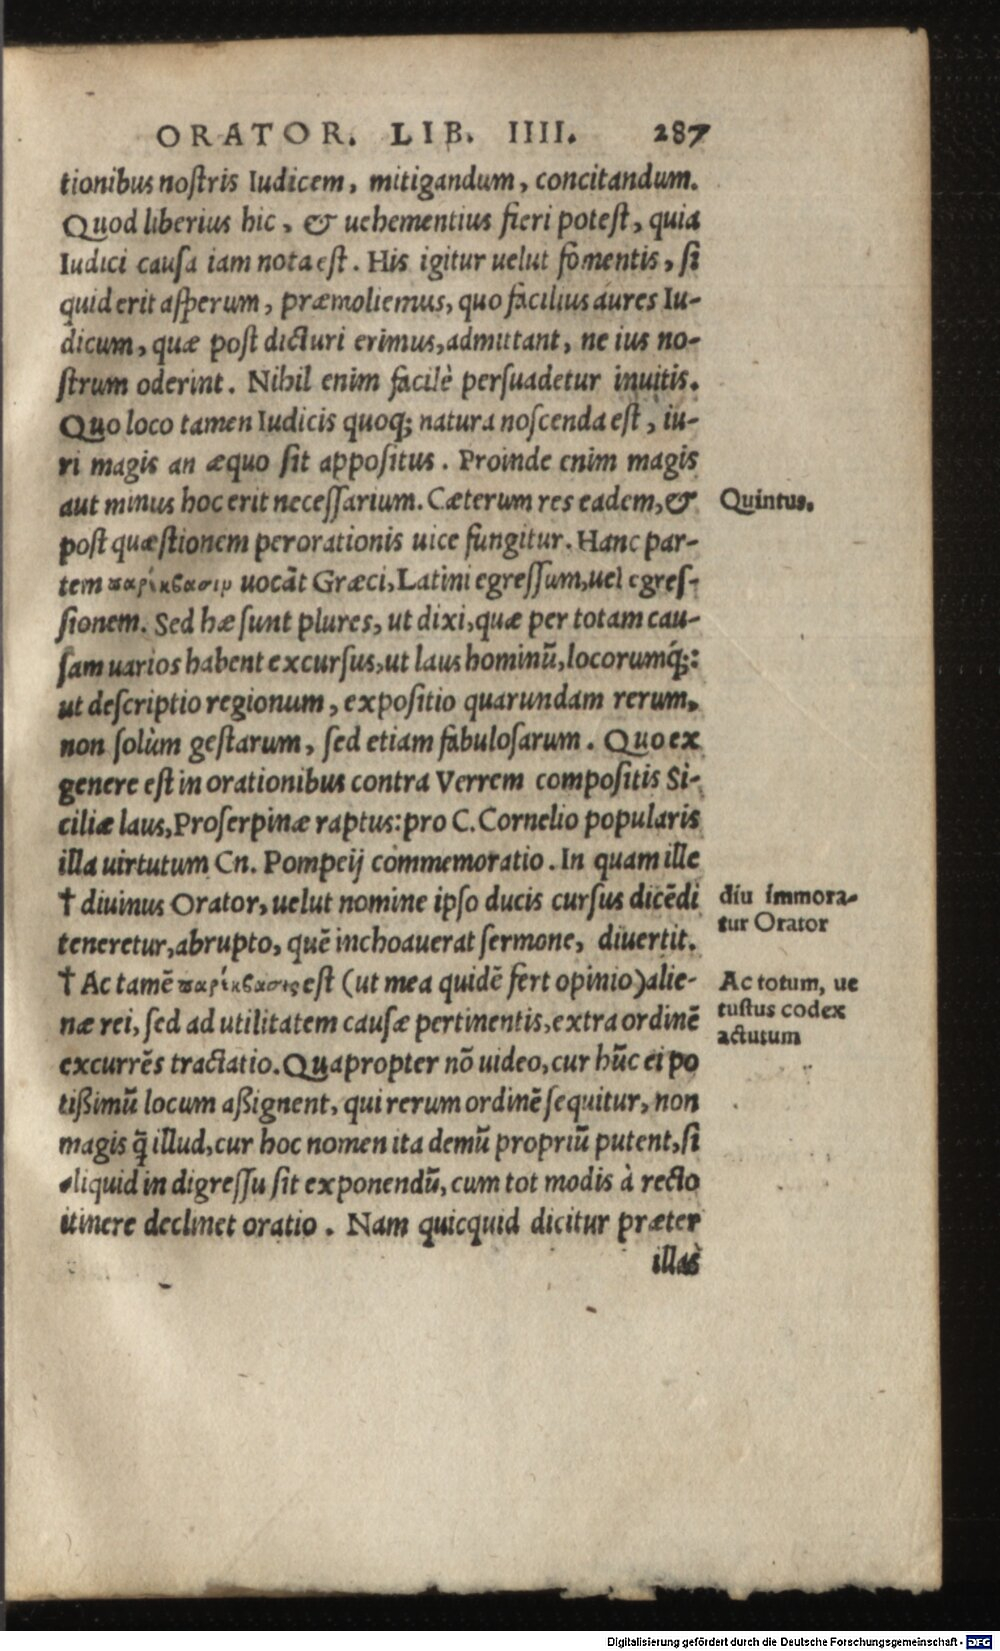 ORATOR. LIB. IIII. 287
tionibus nostris Iudicem, mitigandum, concitandum.
Quod liberius hic, & uehementius fieri potest, quia
Iudici causa iam nota est. His igitur uelut fomentis, si
quid erit asperum, præmoliemus, quo facilius aures Iu-
dicum, quæ post dicturi erimus, admittant, ne ius no-
strum oderint. Nihil enim facilè persuadetur inuitis.
Quo loco tamen Iudicis quoq; natura noscenda est, iu-
ri magis an æquo sit appositus. Proinde enim magis
aut minus hoc erit necessarium. Cæterum res eadem, &
Quintus.
post quæstionem perorationis uice fungitur. Hanc par-
tem παρέκβασιν uocāt Græci, Latini egressum, uel egres-
sionem. Sed hæ sunt plures, ut dixi, quæ per totam cau-
sam uarios habent excursus, ut laus hominū, locorumq́;:
ut descriptio regionum, expositio quarundam rerum,
non solùm gestarum, sed etiam fabulosarum. Quo ex
genere est in orationibus contra Verrem compositis Si-
ciliæ laus, Proserpinæ raptus: pro C. Cornelio popularis
illa uirtutum Cn. Pompeij commemoratio. In quam ille
† diuinus Orator, uelut nomine ipso ducis cursus dicēdi
diu immora-
tur Orator
teneretur, abrupto, quē inchoauerat sermone, diuertit.
† Ac tamē παρέκβασις est (ut mea quidē fert opinio) alie-
Ac totum, ue
tustus codex
actutum
næ rei, sed ad utilitatem causæ pertinentis, extra ordinē
excurrēs tractatio. Quapropter nō uideo, cur hūc ei po
tißimū locum aßignent, qui rerum ordinē sequitur, non
magis q̄ illud, cur hoc nomen ita demū propriū putent, si
aliquid in digressu sit exponendū, cum tot modis à recto
itinere declinet oratio. Nam quicquid dicitur præter
illas
Digitalisierung gefördert durch die Deutsche Forschungsgemeinschaft - DFG